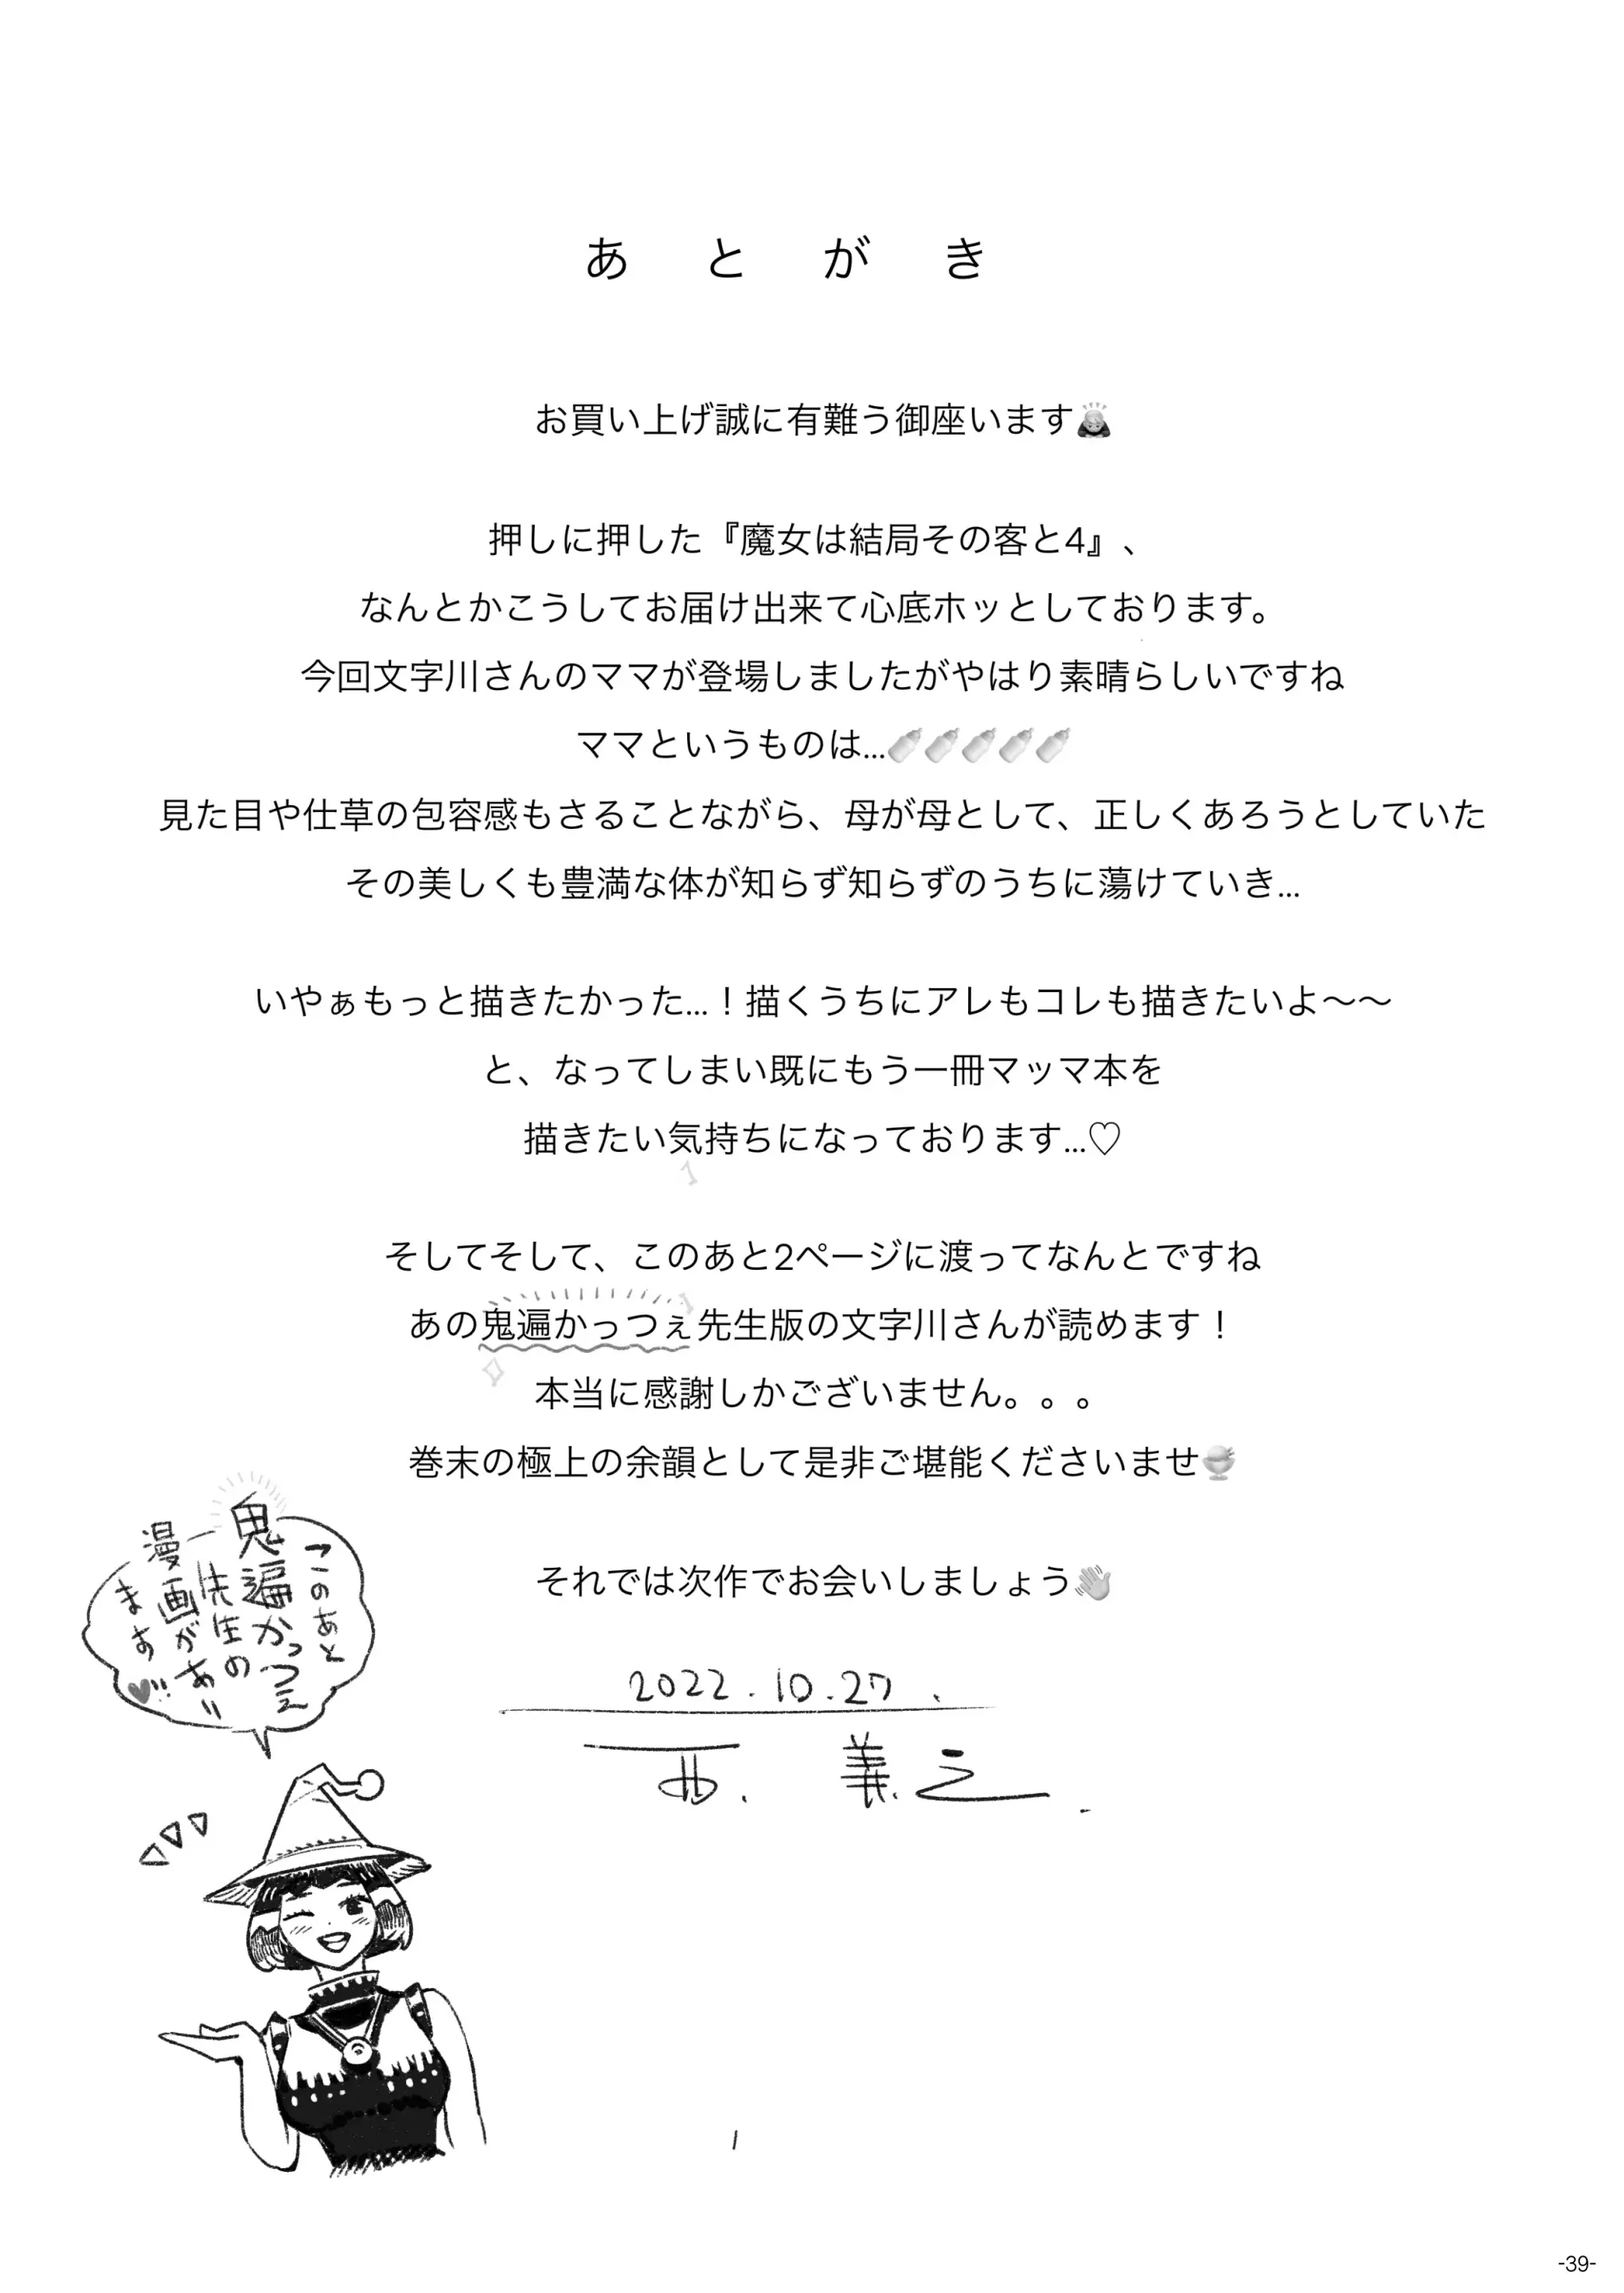 あとがき
お買い上げ誠に有難う御座います🙇
押しに押した『魔女は結局その客と4』、
なんとかこうしてお届け出来て心底ホッとしております。
今回文字川さんのママが登場しましたがやはり素晴らしいですね
ママというものは...🍼🍼🍼🍼🍼
見た目や仕草の包容感もさることながら、母が母として、正しくあろうとしていた
その美しくも豊満な体が知らず知らずのうちに蕩けていき...
いやぁもっと描きたかった...！描くうちにアレもコレも描きたいよ〜〜
と、なってしまい既にもう一冊マッマ本を
描きたい気持ちになっております...♡
そしてそして、このあと2ページに渡ってなんとですね
あの鬼遍かっつぇ先生版の文字川さんが読めます！
本当に感謝しかございません。。。
巻末の極上の余韻として是非ご堪能くださいませ🍨
それでは次作でお会いしましょう👋
このあと
鬼遍かっつぇ
先生の
漫画があり
ます♥!!
2022.10.27.
西. 義之.
-39-